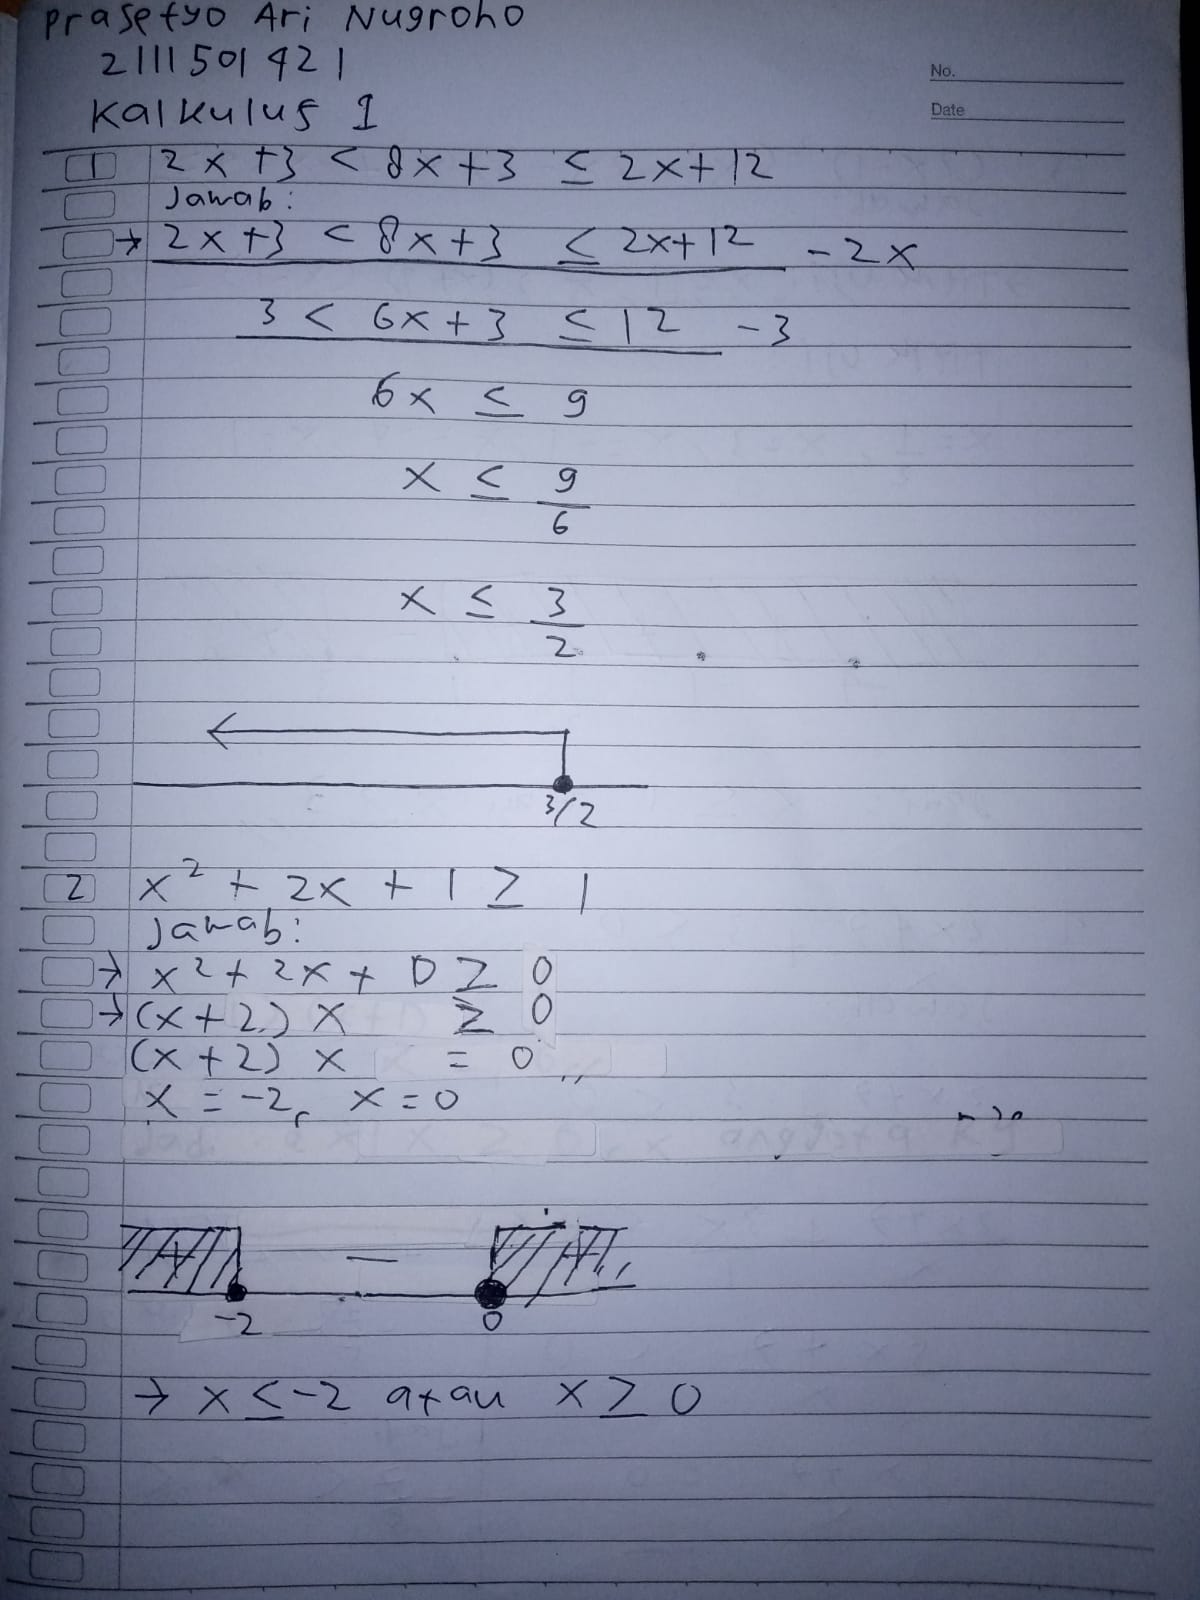 Prasetyo Ari Nugroho
2111501421
Kalkulus 1
No.
Date
1 2x + 3 < 8x + 3 ≤ 2x + 12
Jawab:
→ 2x + 3 < 8x + 3 ≤ 2x + 12 - 2x
3 < 6x + 3 ≤ 12 - 3
6x ≤ 9
x ≤ 9/6
x ≤ 3/2
3/2
2 x² + 2x + 1 ≥ 1
Jawab:
→ x² + 2x + 0 ≥ 0
→ (x + 2) x ≥ 0
(x + 2) x = 0
x = -2, x = 0
+ − +
-2 0
→ x ≤ -2 atau x ≥ 0